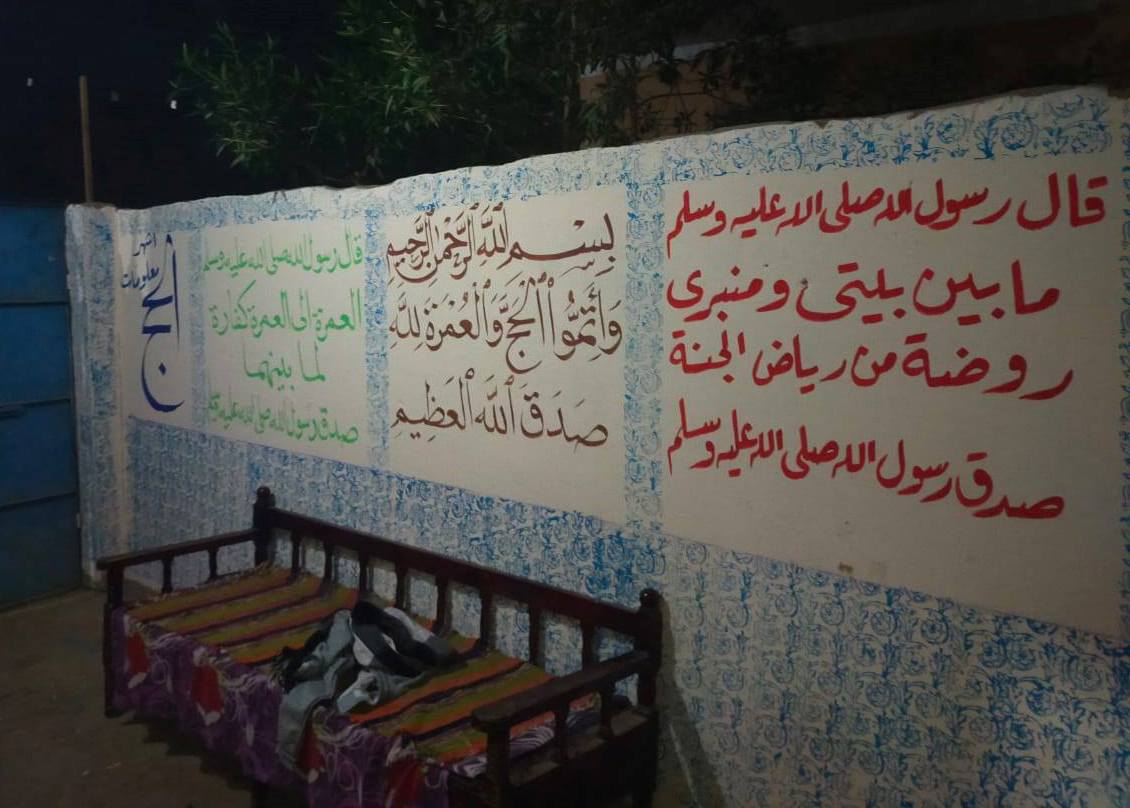 قال رسول الله صلى الله عليه وسلم
ما بين بيتى ومنبرى
روضة من رياض الجنة
صدق رسول الله صلى الله عليه وسلم
بِسْمِ ٱللَّهِ ٱلرَّحْمَٰنِ ٱلرَّحِيمِ
وَأَتِمُّوا۟ ٱلْحَجَّ وَٱلْعُمْرَةَ لِلَّهِ
صَدَقَ ٱللَّه ٱلعَظِيمِ
قال رسول الله صلى الله عليه وسلم
العمرة الى العمرة كفارة
لما بينهما
صدق رسول الله صلى الله عليه
الحج
اشهر
معلومات